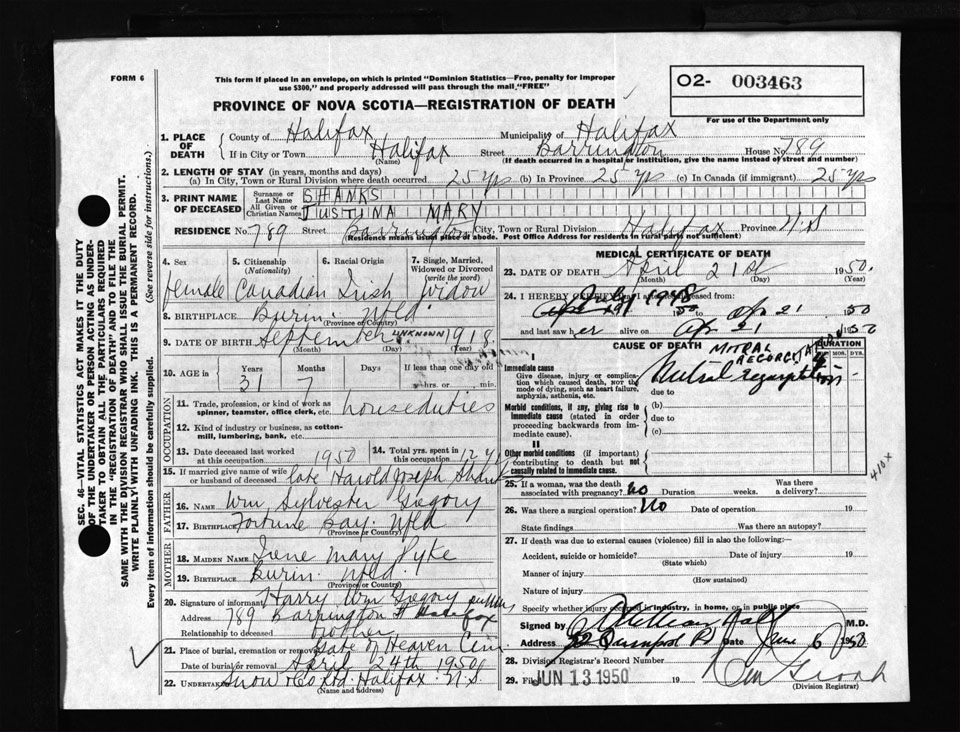 FORM 6
This form if placed in an envelope, on which is printed "Dominion Statistics—Free, penalty for improper
use $300," and properly addressed will pass through the mail "FREE"
O2- 003463
For use of the Department only
PROVINCE OF NOVA SCOTIA—REGISTRATION OF DEATH
1. PLACE OF DEATH
County of Halifax Municipality of Halifax
If in City or Town Halifax Street Barrington House No. 789
(Name) (If death occurred in a hospital or institution, give the name instead of street and number)
2. LENGTH OF STAY (in years, months and days)
(a) In City, Town or Rural Division where death occurred 25 yrs (b) In Province 25 yrs (c) In Canada (if immigrant) 25 yrs
3. PRINT NAME OF DECEASED
Surname or Last Name SHANKS
All Given or Christian Names JUSTUNA MARY
RESIDENCE No. 789 Street Barrington City, Town or Rural Division Halifax Province N.S
(Residence means usual place of abode. Post Office Address for residents in rural parts not sufficient)
4. Sex
female
5. Citizenship
(Nationality)
Canadian
6. Racial Origin
Irish
7. Single, Married,
Widowed or Divorced
(write the word)
widow
8. BIRTHPLACE Burin Nfld
(Province or Country)
9. DATE OF BIRTH September UNKNOWN 1918
(Month) (Day) (Year)
10. AGE in
Years Months Days If less than one day old
31 7 hrs. or min.
OCCUPATION
11. Trade, profession, or kind of work as
spinner, teamster, office clerk, etc. houseduties
12. Kind of industry or business, as cotton-
mill, lumbering, bank, etc.
13. Date deceased last worked
at this occupation 1950
14. Total yrs. spent in
this occupation 12 y
15. If married give name of wife
or husband of deceased late Harold Joseph Shanks
FATHER
16. Name Wm Sylvester Gregory
17. Birthplace Fortune Bay. Nfld
(Province or Country)
MOTHER
18. Maiden Name Irene Mary Pyke
19. Birthplace Burin. Nfld
(Province or Country)
20. Signature of informant Harry Wm Gregory
Address 789 Barrington St Halifax
Relationship to deceased Brother
21. Place of burial, cremation or removal Gate of Heaven Cem
Date of burial or removal April 24th 1950
22. Undertaker Snow & Co Ltd. Halifax N.S.
(Name and address)
MEDICAL CERTIFICATE OF DEATH
23. DATE OF DEATH April 21st 1950.
(Month) (Day) (Year)
24. I HEREBY CERTIFY that I attended deceased from:
July 1948 to Apr 21 1950
and last saw her alive on Apr 21 1950
CAUSE OF DEATH
DURATION
MOS. DYS.
I
Immediate cause
Give disease, injury or complica-
tion which caused death, NOT the
mode of dying, such as heart failure,
asphyxia, asthenia, etc.
MITRAL REGURGITATION
(a) Mitral regurgitation
due to
Morbid conditions, if any, giving rise to
immediate cause (stated in order
proceeding backwards from im-
mediate cause).
(b)
due to
(c)
II
Other morbid conditions (if important)
contributing to death but not
causally related to immediate cause.
410x
25. If a woman, was the death
associated with pregnancy? No Duration weeks. Was there
a delivery?
26. Was there a surgical operation? No Date of operation 19
State findings Was there an autopsy?
27. If death was due to external causes (violence) fill in also the following:—
Accident, suicide or homicide? Date of injury 19
(State which)
Manner of injury
(How sustained)
Nature of injury
Specify whether injury occurred in industry, in home, or in public place
Signed by M.D.
Address Quinpool Rd Date June 6 1950
28. Division Registrar's Record Number
29. Filed JUN 13 1950 19
(Division Registrar)
SEC. 46—VITAL STATISTICS ACT MAKES IT THE DUTY
OF THE UNDERTAKER OR PERSON ACTING AS UNDER-
TAKER TO OBTAIN ALL THE PARTICULARS REQUIRED
IN THE "REGISTRATION OF DEATH" AND TO FILE THE
SAME WITH THE DIVISION REGISTRAR WHO SHALL ISSUE THE BURIAL PERMIT.
WRITE PLAINLY WITH UNFADING INK. THIS IS A PERMANENT RECORD.
Every item of information should be carefully supplied. (See reverse side for instructions.)